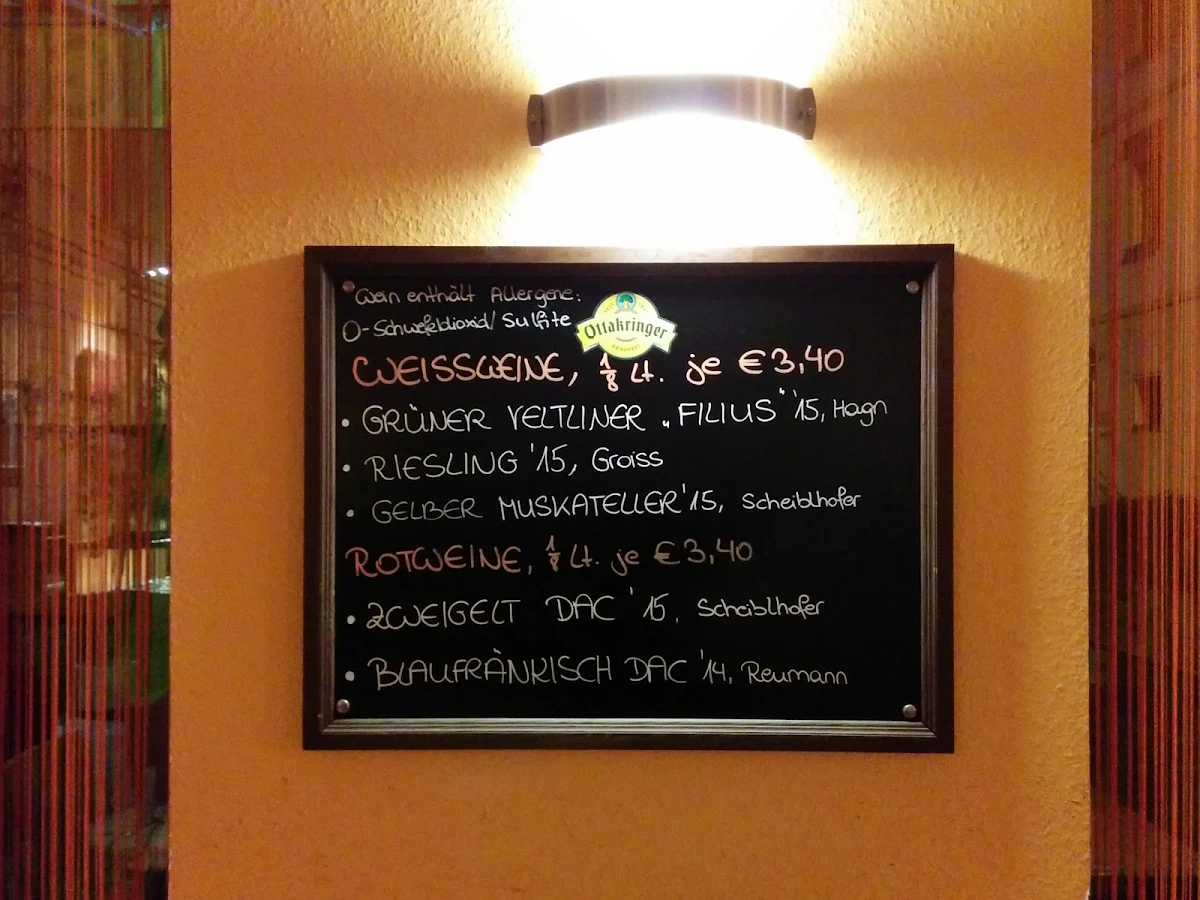 Wein enthält Allergene:
O-Schwefeldioxid/Sulfite
Ottakringer
BRAUEREI
WEISSWEINE, 1/8 Lt. je €3,40
• GRÜNER VELTLINER „FILIUS" '15, Hagn
• RIESLING '15, Groiss
• GELBER MUSKATELLER '15, Scheiblhofer
ROTWEINE, 1/8 Lt. je €3,40
• ZWEIGELT DAC '15, Scheiblhofer
• BLAUFRÄNKISCH DAC '14, Reumann